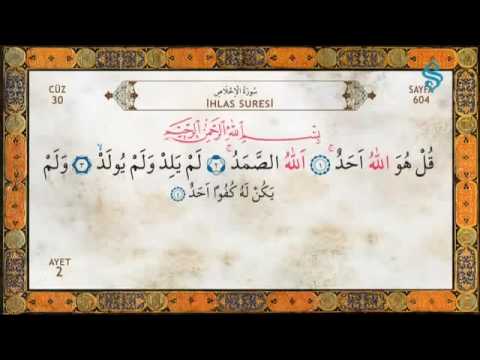 CÜZ
30
سُورَةُ الْإِخْلَاصِ
İHLAS SURESİ
SAYFA
604
بِسْمِ اللّٰهِ الرَّحْمٰنِ الرَّحِيمِ
قُلْ هُوَ اللّٰهُ اَحَدٌۚ ﴿١﴾ اَللّٰهُ الصَّمَدُۚ ﴿٢﴾ لَمْ يَلِدْ وَلَمْ يُولَدْۙ ﴿٣﴾ وَلَمْ
يَكُنْ لَهُ كُفُوًا اَحَدٌ ﴿٤﴾
AYET
2